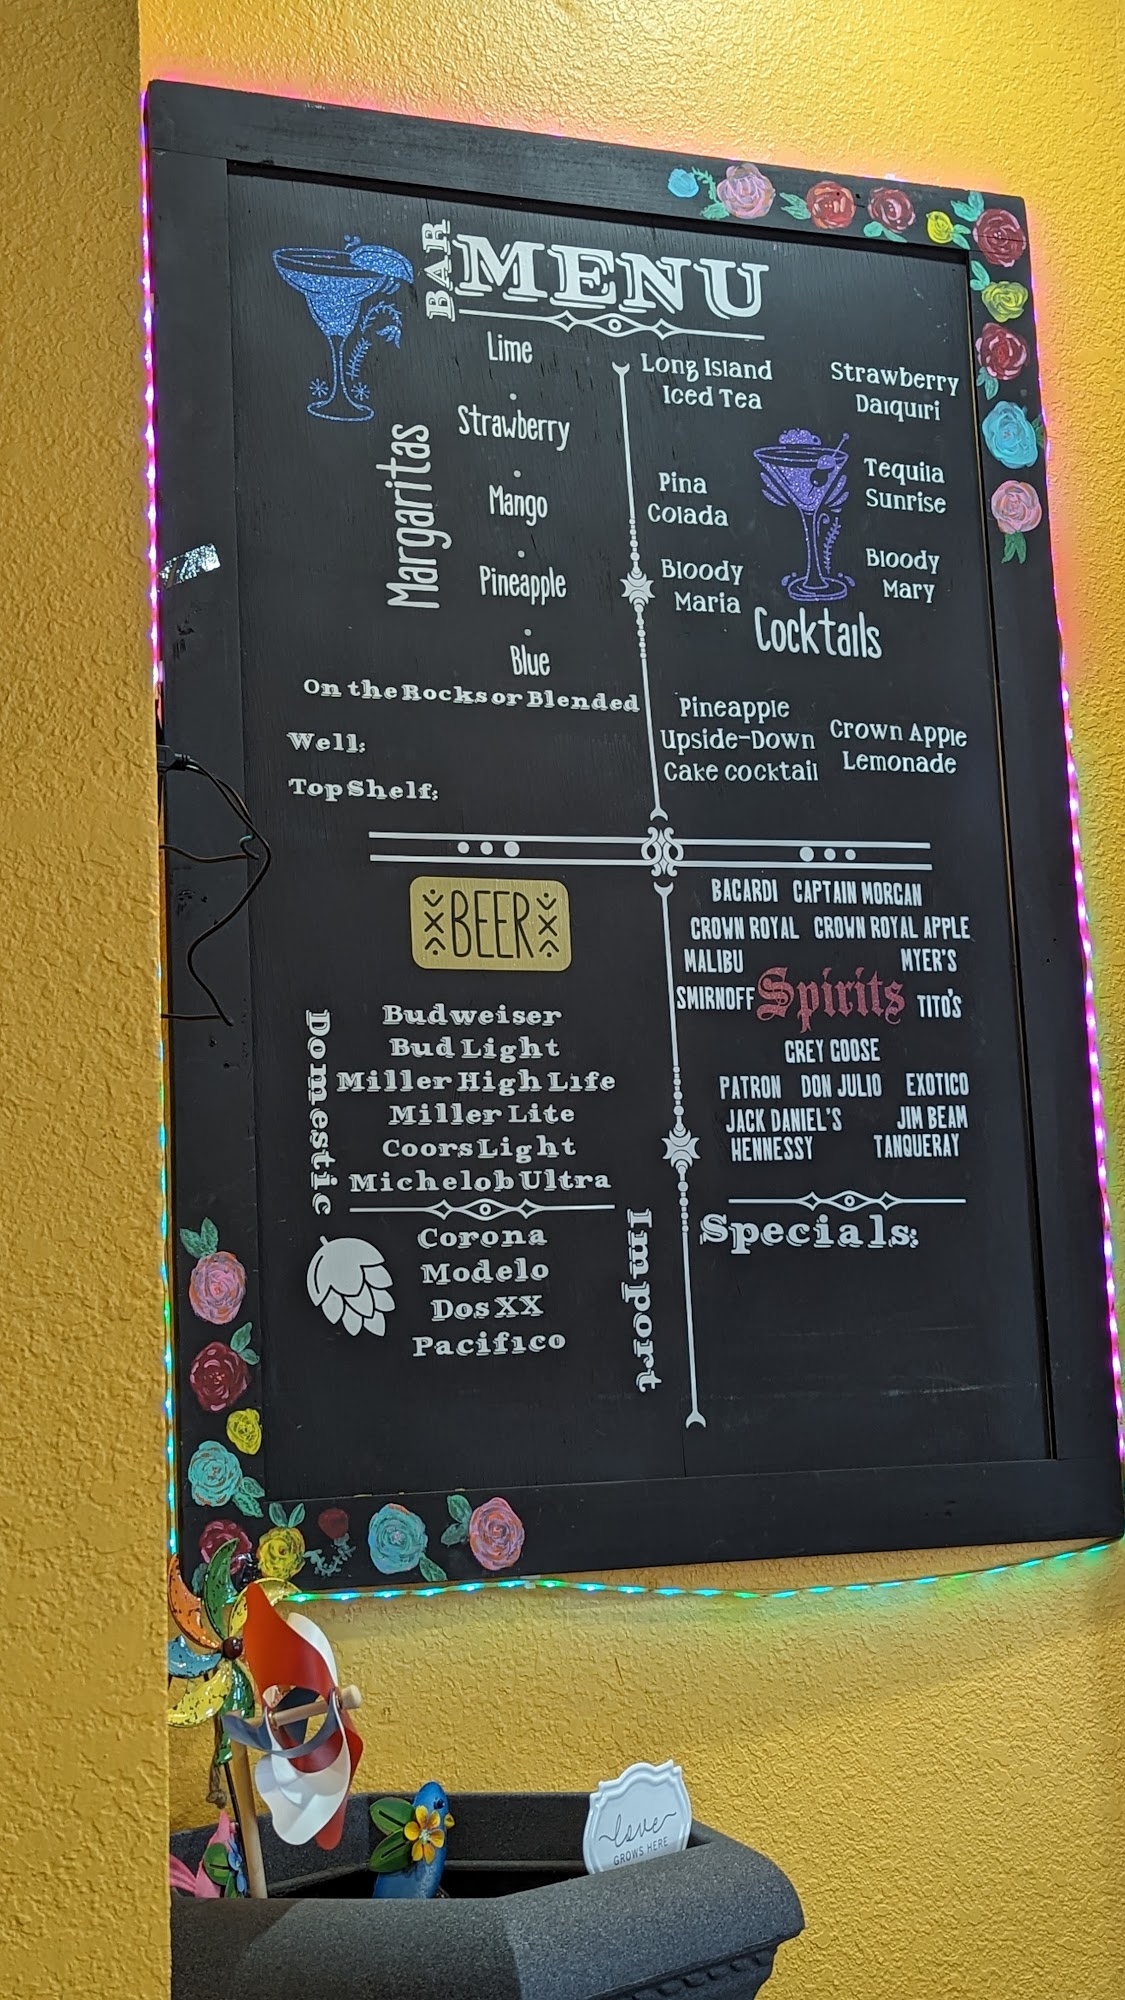 BAR
MENU
Margaritas
Lime
Strawberry
Mango
Pineapple
Blue
On the Rocks or Blended
Well:
Top Shelf:
Long Island
Iced Tea
Strawberry
Daiquiri
Pina
Colada
Tequila
Sunrise
Bloody
Maria
Bloody
Mary
Cocktails
Pineapple
Upside-Down
Cake cocktail
Crown Apple
Lemonade
BEER
Domestic
Budweiser
Bud Light
Miller High Life
Miller Lite
Coors Light
Michelob Ultra
Import
Corona
Modelo
Dos XX
Pacifico
BACARDI CAPTAIN MORGAN
CROWN ROYAL CROWN ROYAL APPLE
MALIBU MYER'S
SMIRNOFF Spirits TITO'S
GREY GOOSE
PATRON DON JULIO EXOTICO
JACK DANIEL'S JIM BEAM
HENNESSY TANQUERAY
Specials:
love
GROWS HERE